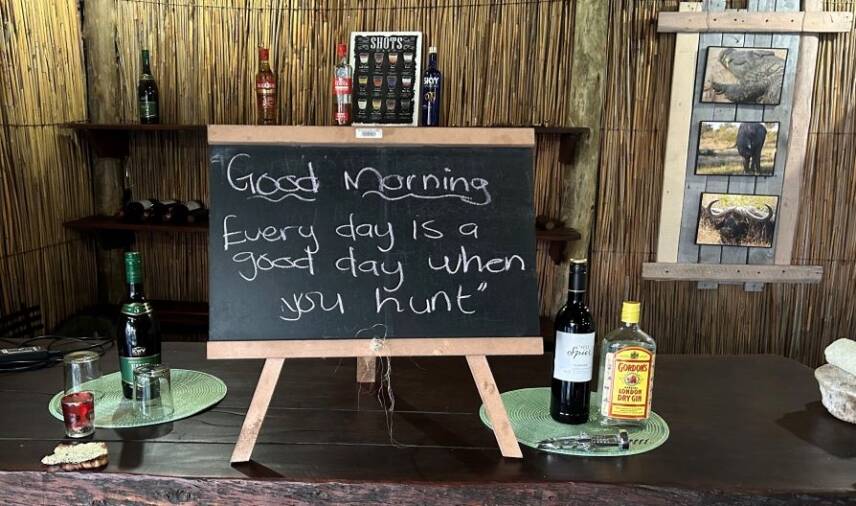 SHOTS
SKYY
Good Morning
Every day is a
good day when
you hunt"
Spier
GORDON'S
LONDON
DRY GIN